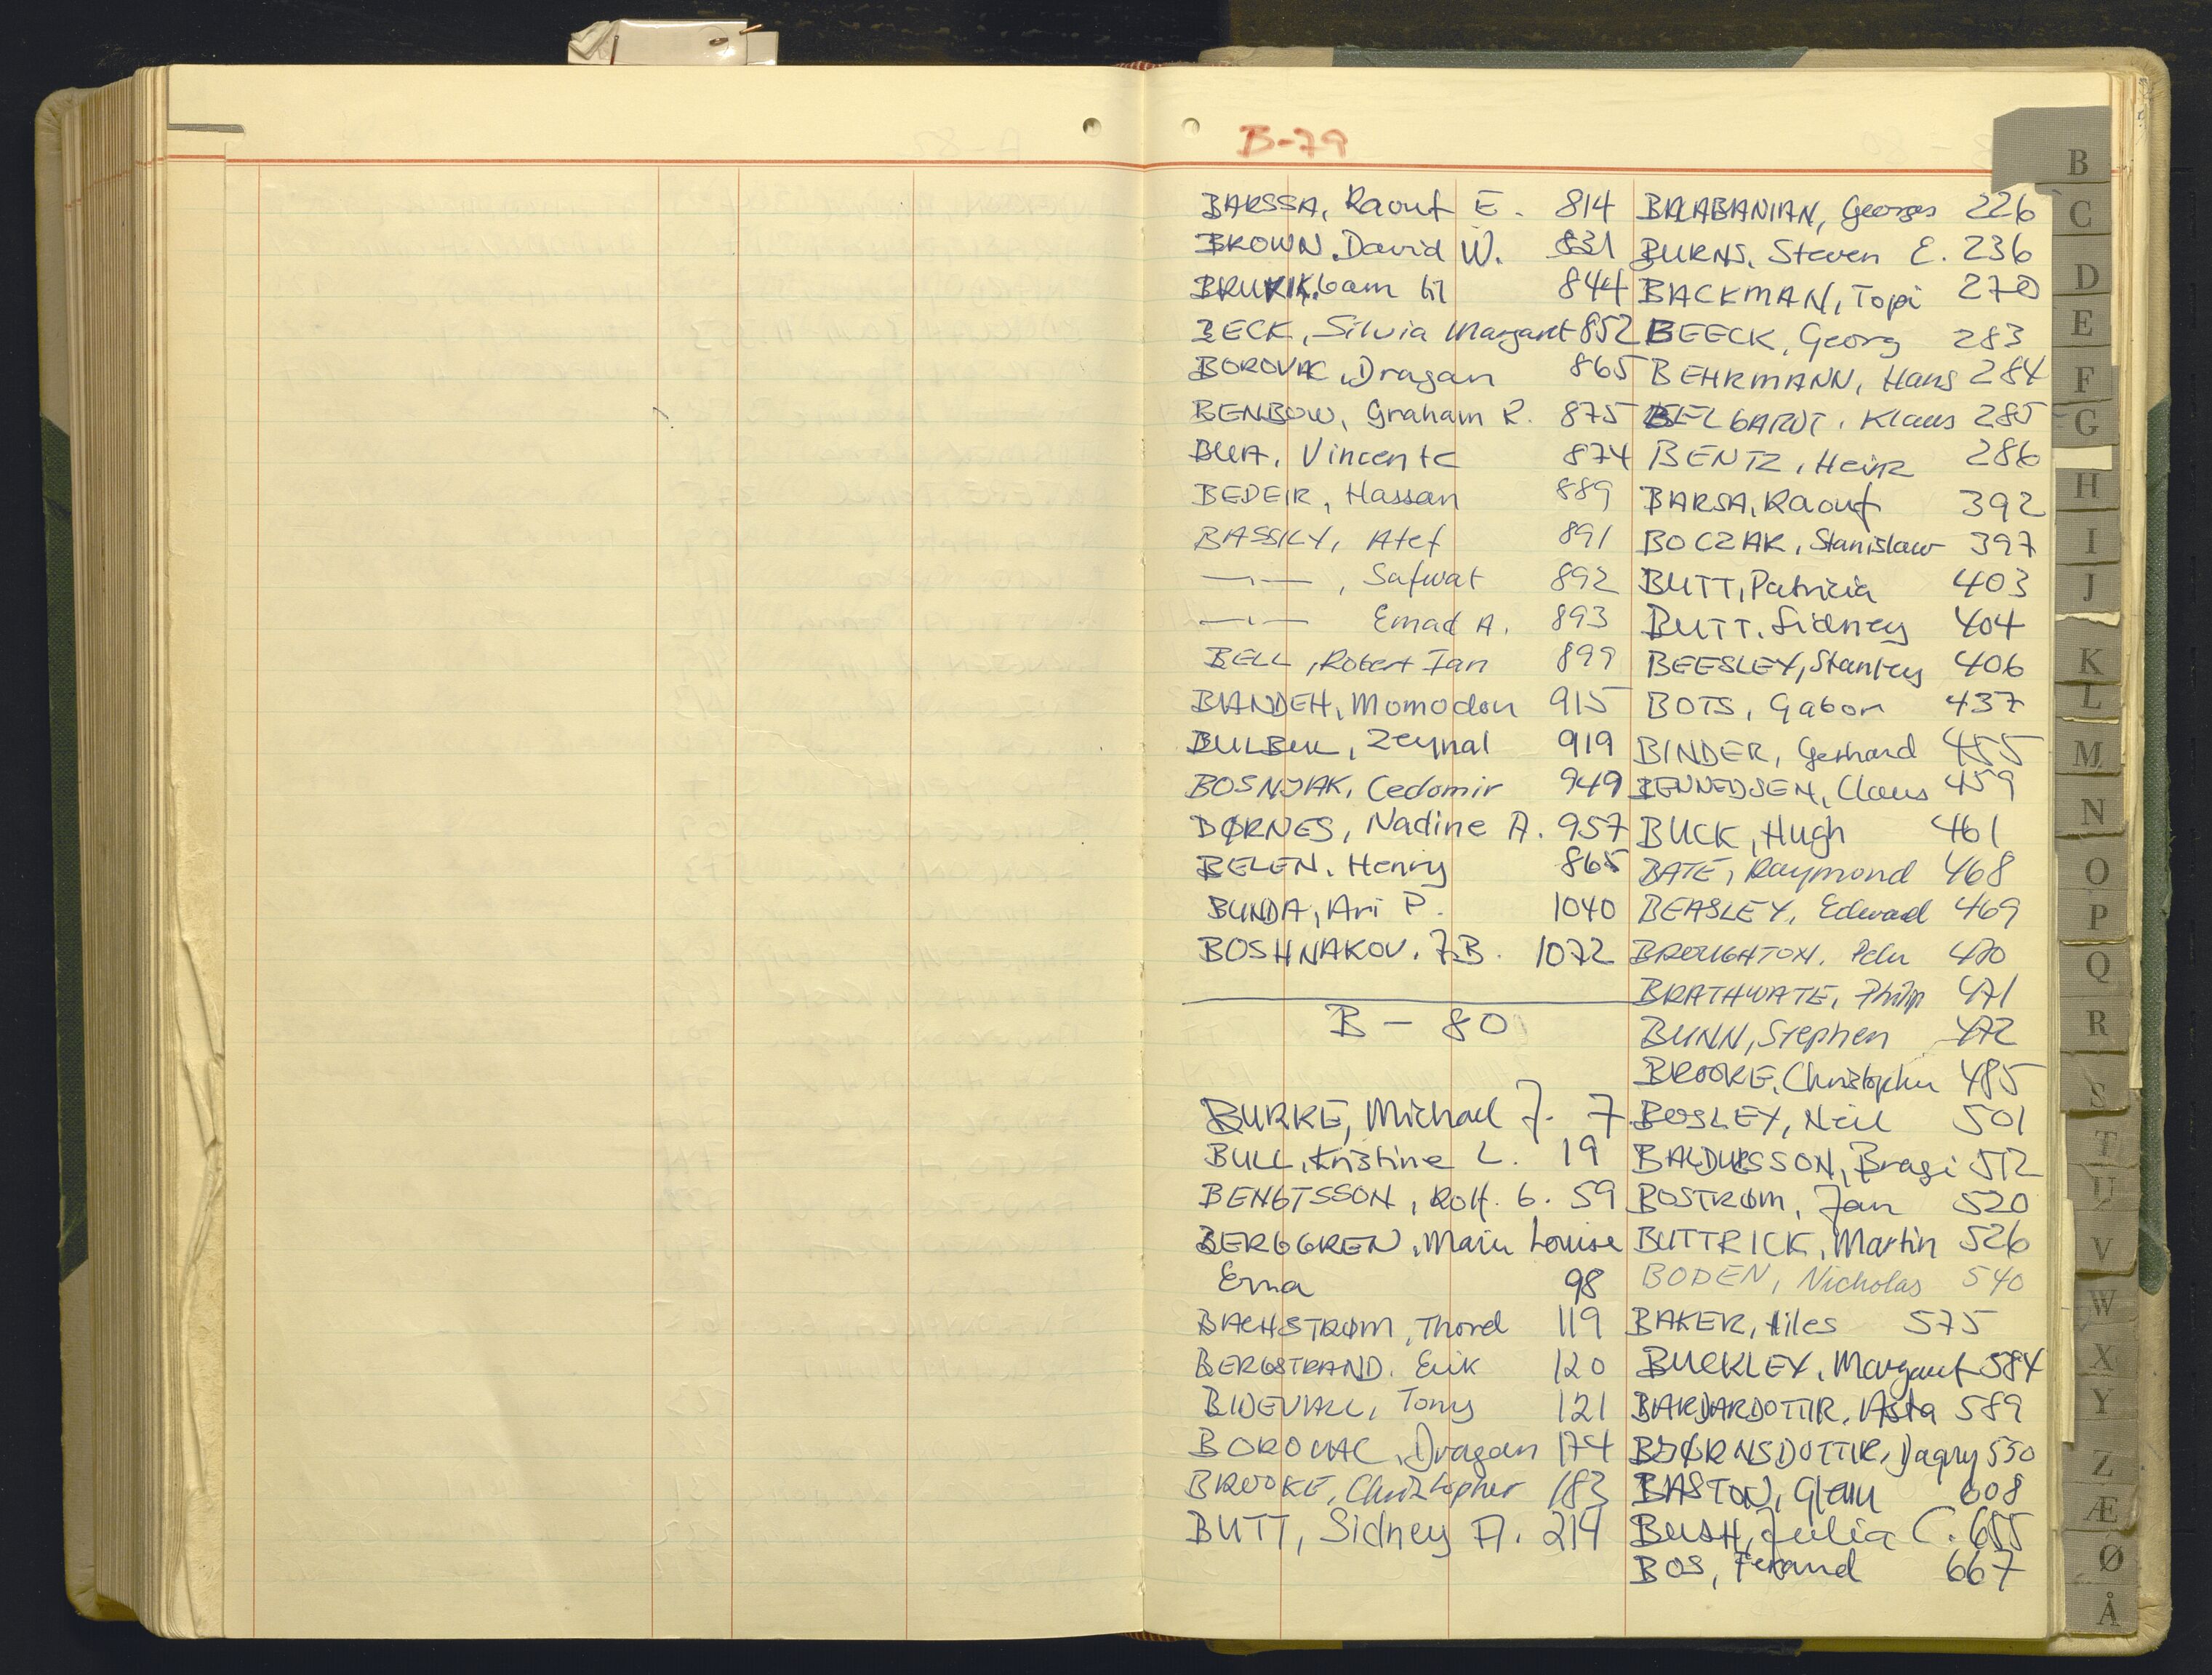 B-79
BARSSA, Raouf E. 814
BROWN, David W. 831
844
BECK, Silvia Margaret 852
BOROVAC, Dragan 865
BENBOW, Graham R. 875
BUA, Vincente 874
BEDEIR, Hassan 889
BASSILY, Atef 891
—"— , Safwat 892
—"— Emad A. 893
BELL, Robert Ian 899
BIANDEH, Momodou 915
BULBUL, Zeynal 919
BOSNJAK, Cedomir 949
BØRNES, Nadine A. 957
BELEN, Henry 865
BUNDA, Ari P. 1040
BOSHNAKOV, J.B. 1072
B - 80
BURKE, Michael J. 7
BULL, Kristine L. 19
BENGTSSON, Rolf G. 59
BERGGREN, Marie Louise
Erna 98
BACHSTRØM, Thord 119
BERGSTRAND, Erik 120
BIDEVALL, Tony 121
BOROVAC, Dragan 174
BROOKE, Christopher 183
BUTT, Sidney A. 214
BALABANIAN, Georges 226
BURNS, Steven E. 236
BACKMAN, Topi 270
BEECK, Georg 283
BEHRMANN, Hans 284
BELGARDT, Klaus 285
BENTZ, Heinz 286
BARSA, Raouf 392
BOCZAK, Stanislaw 397
BUTT, Patricia 403
BUTT, Sidney 404
BEESLEY, Stanley 406
BOTS, Gabor 437
BINDER, Gerhard 455
BENNEDSEN, Claus 459
BUCK, Hugh 461
BATE, Raymond 468
BEASLEY, Edward 469
BROUGHTON, Peter 470
BRATHWATE, Philip 471
BUNN, Stephen 472
BROOKE, Christopher 485
BOSLEY, Neil 501
BALDURSSON, Bragi 512
BOSTRØM, Jan 520
BUTTRICK, Martin 526
BODEN, Nicholas 540
BAKER, 575
BUCKLEY, Margaret 584
BARDARDOTTIR, Asta 589
BJØRNSDOTTIR, Dagny 550
BASTON, Glenn 608
BUSH, Julia C. 655
BOS, Ferand 667
B
C
D
E
F
G
H
I
J
K
L
M
N
O
P
Q
R
S
T
U
V
W
X
Y
Z
Æ
Ø
Å